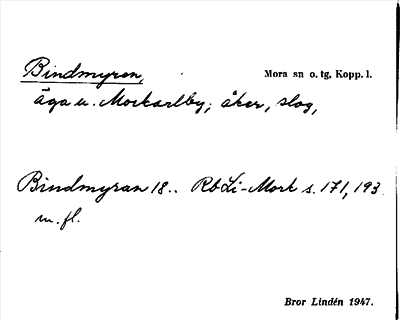 Bindmyren, Mora sn o. tg, Kopp. l.
äga u. Morkarlby; åker, slog,
Bindmyran 18.. Rb Li-Mork s. 171, 193
m. fl.
Bror Lindén 1947.